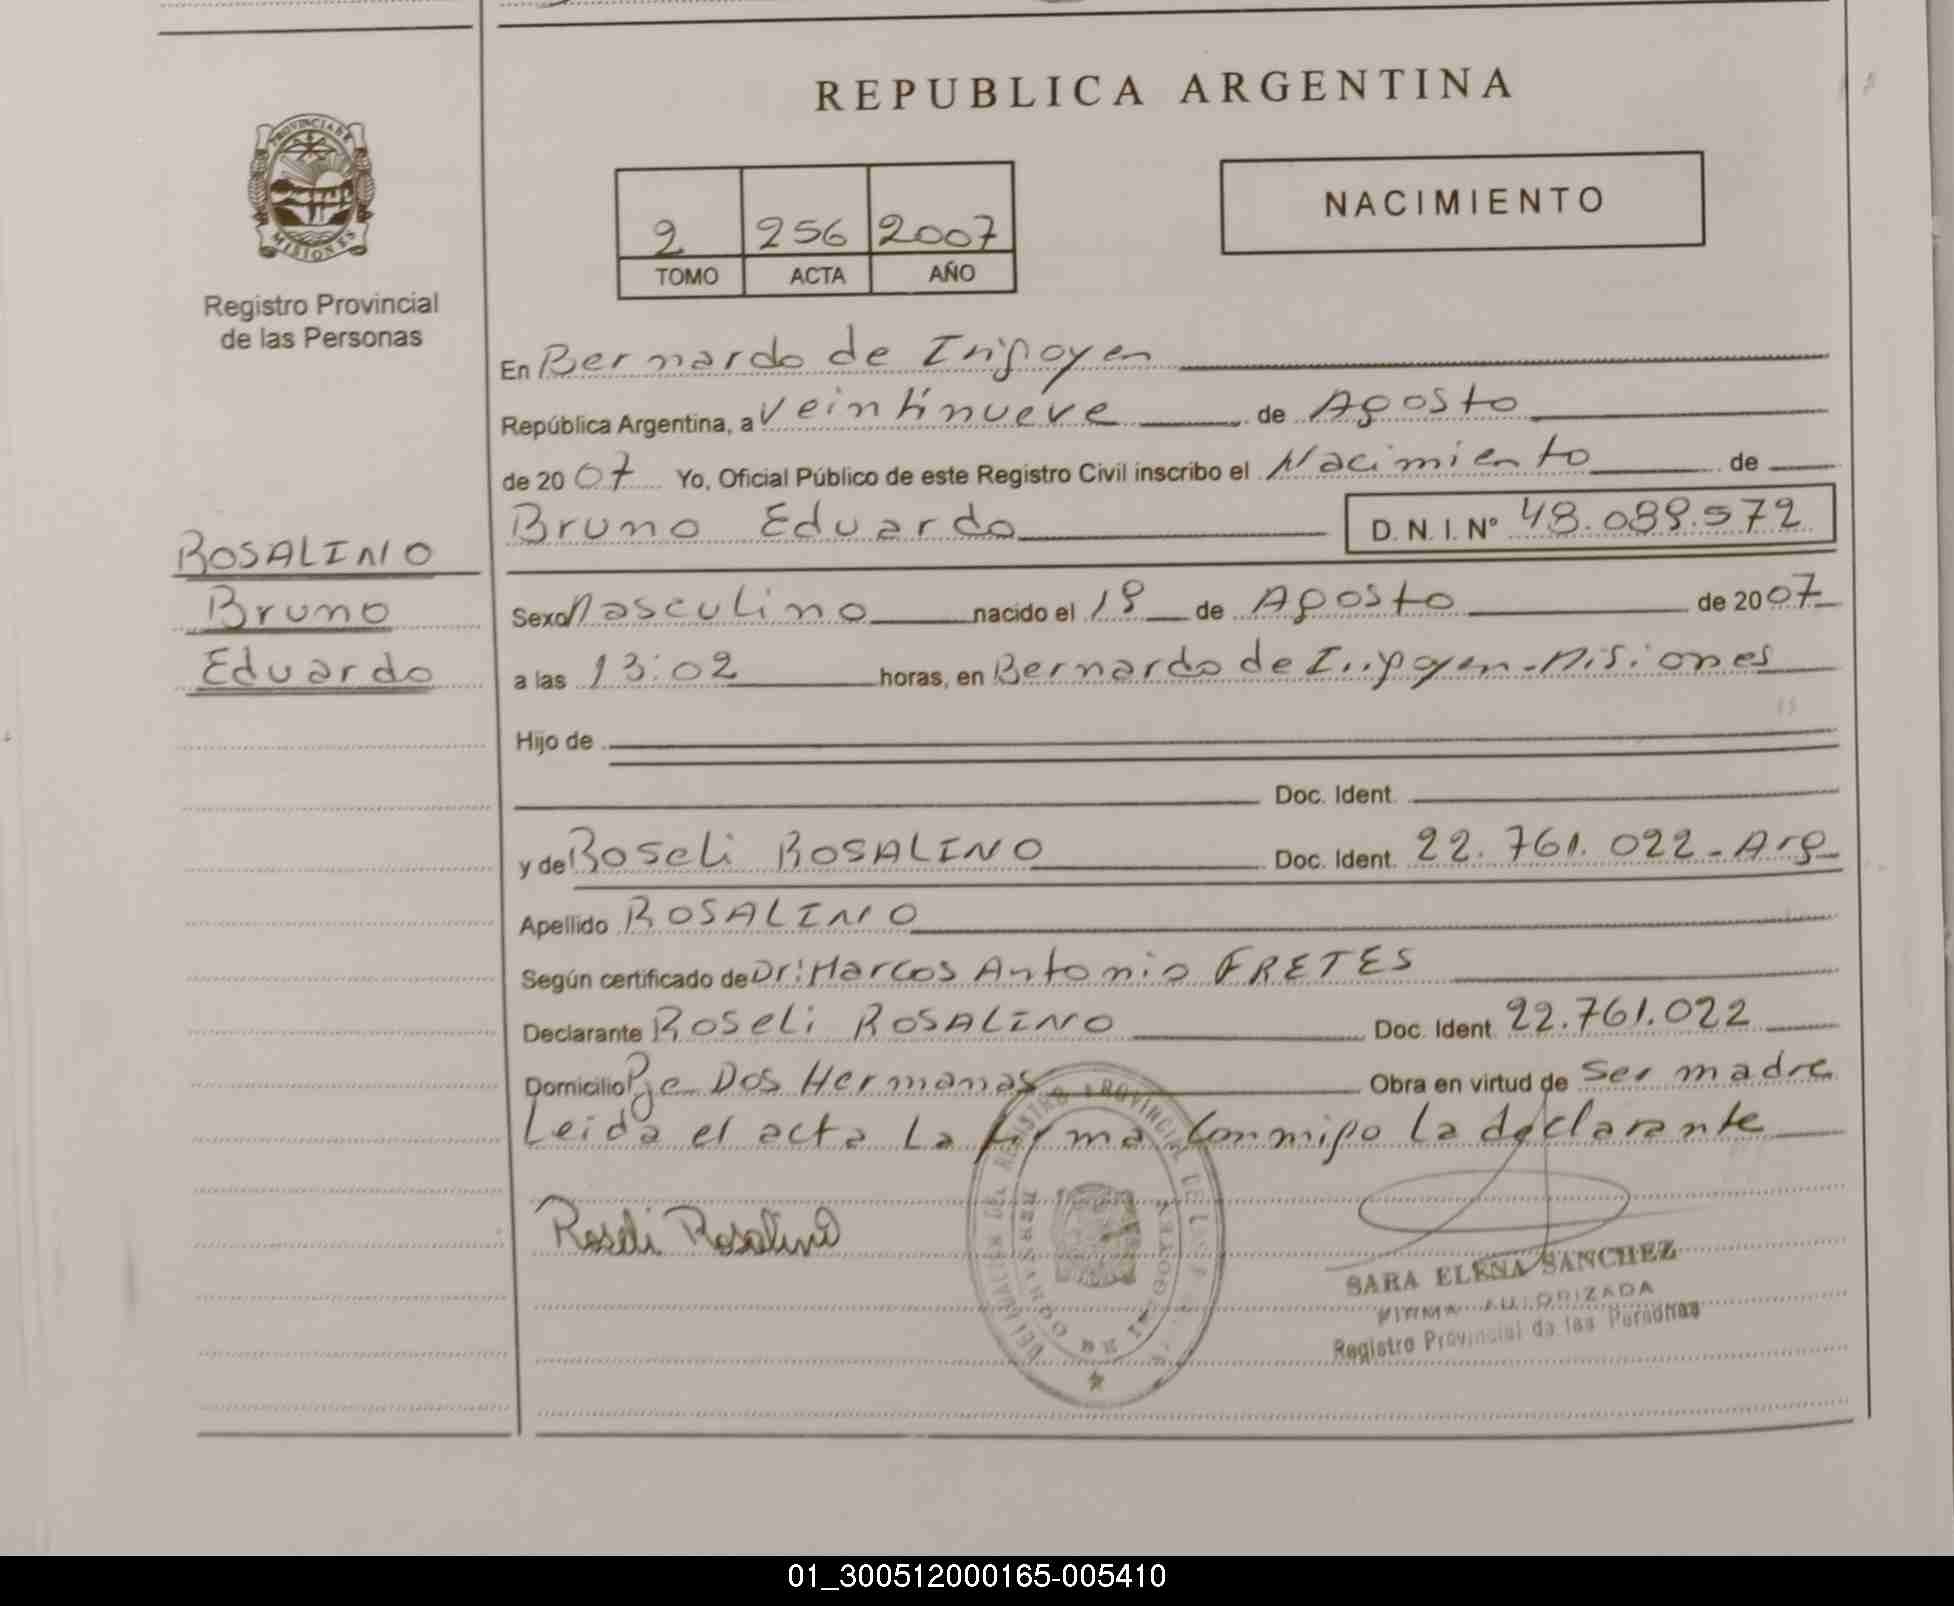 REPUBLICA ARGENTINA
PROVINCIA DE
MISIONES
Registro Provincial
de las Personas
2 256 2007
TOMO ACTA AÑO
NACIMIENTO
En Bernardo de Irigoyen
República Argentina, a veintinueve de Agosto
de 2007 Yo, Oficial Público de este Registro Civil inscribo el Nacimiento de
Bruno Eduardo D. N. I. N° 48.089.572
ROSALINO
Bruno
Eduardo
Sexo Masculino nacido el 19 de Agosto de 2007
a las 13:02 horas, en Bernardo de Irigoyen - Misiones
Hijo de
Doc. Ident.
y de Roseli ROSALINO Doc. Ident. 22.761.022 - Arg
Apellido ROSALINO
Según certificado de Dr: Marcos Antonio FRETES
Declarante Roseli ROSALINO Doc. Ident. 22.761.022
Domicilio Pje Dos Hermanas Obra en virtud de ser madre
Leida el acta la firma conmigo la declarante
Roseli Rosalino
SARA ELENA SANCHEZ
FIRMA AUTORIZADA
Registro Provincial de las Personas
01_300512000165-005410